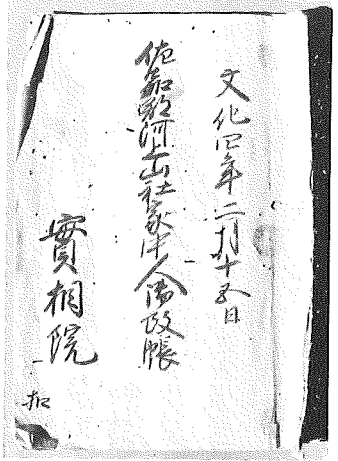 文化四年二月十五日
佐嘉郡河上山社家中人陽改帳
實相院
扣